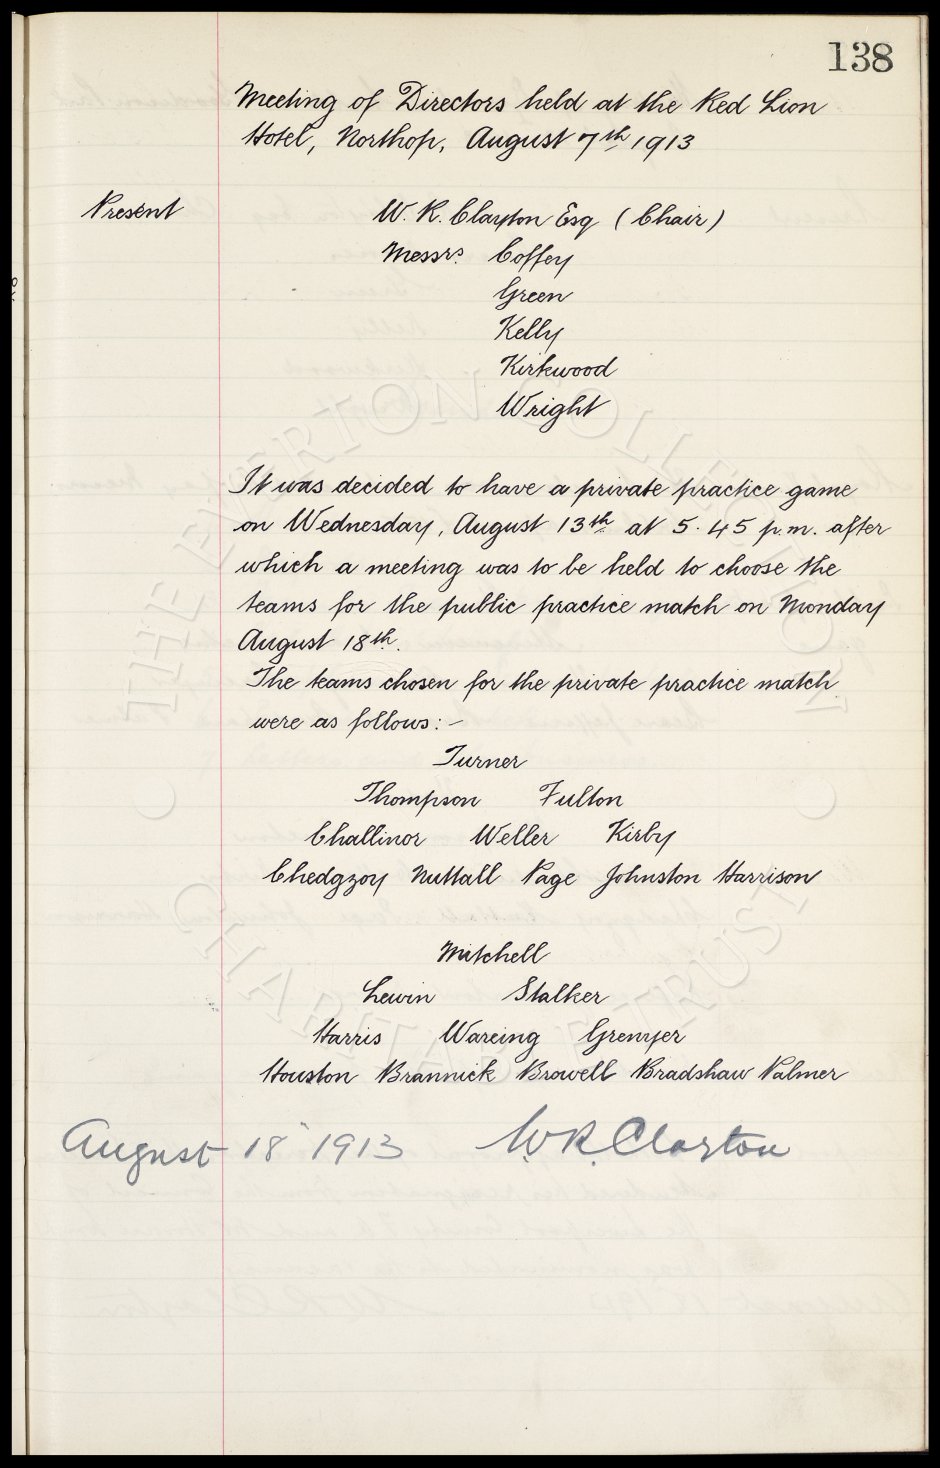 138
Meeting of Directors held at the Red Lion
Hotel, Northop, August 7th 1913
Present
W. R. Clayton Esq (Chair)
Messrs. Coffey
Green
Kelly
Kirkwood
Wright
It was decided to have a private practice game
on Wednesday, August 13th at 5.45 p.m. after
which a meeting was to be held to choose the
teams for the public practice match on Monday
August 18th.
The teams chosen for the private practice match
were as follows:-
Turner
Thompson Fulton
Challinor Weller Kirby
Chedgzoy Nuttall Page Johnston Harrison
Mitchell
Lewin Stalker
Harris Wareing Grenyer
Houston Brannick Browell Bradshaw Palmer
August 18" 1913 W.R.Clayton
THE EVERTON COLLECTION
CHARITABLE TRUST